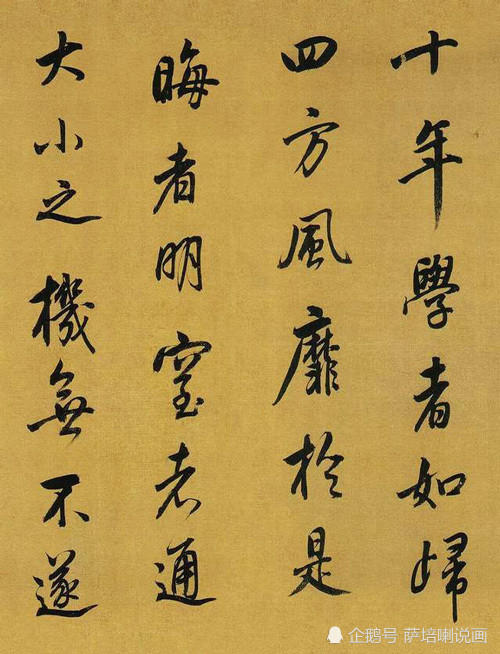 十年學者如歸
四方風靡於是
晦者明窒者通
大小之機無不遂
企鹅号 萨培喇说画